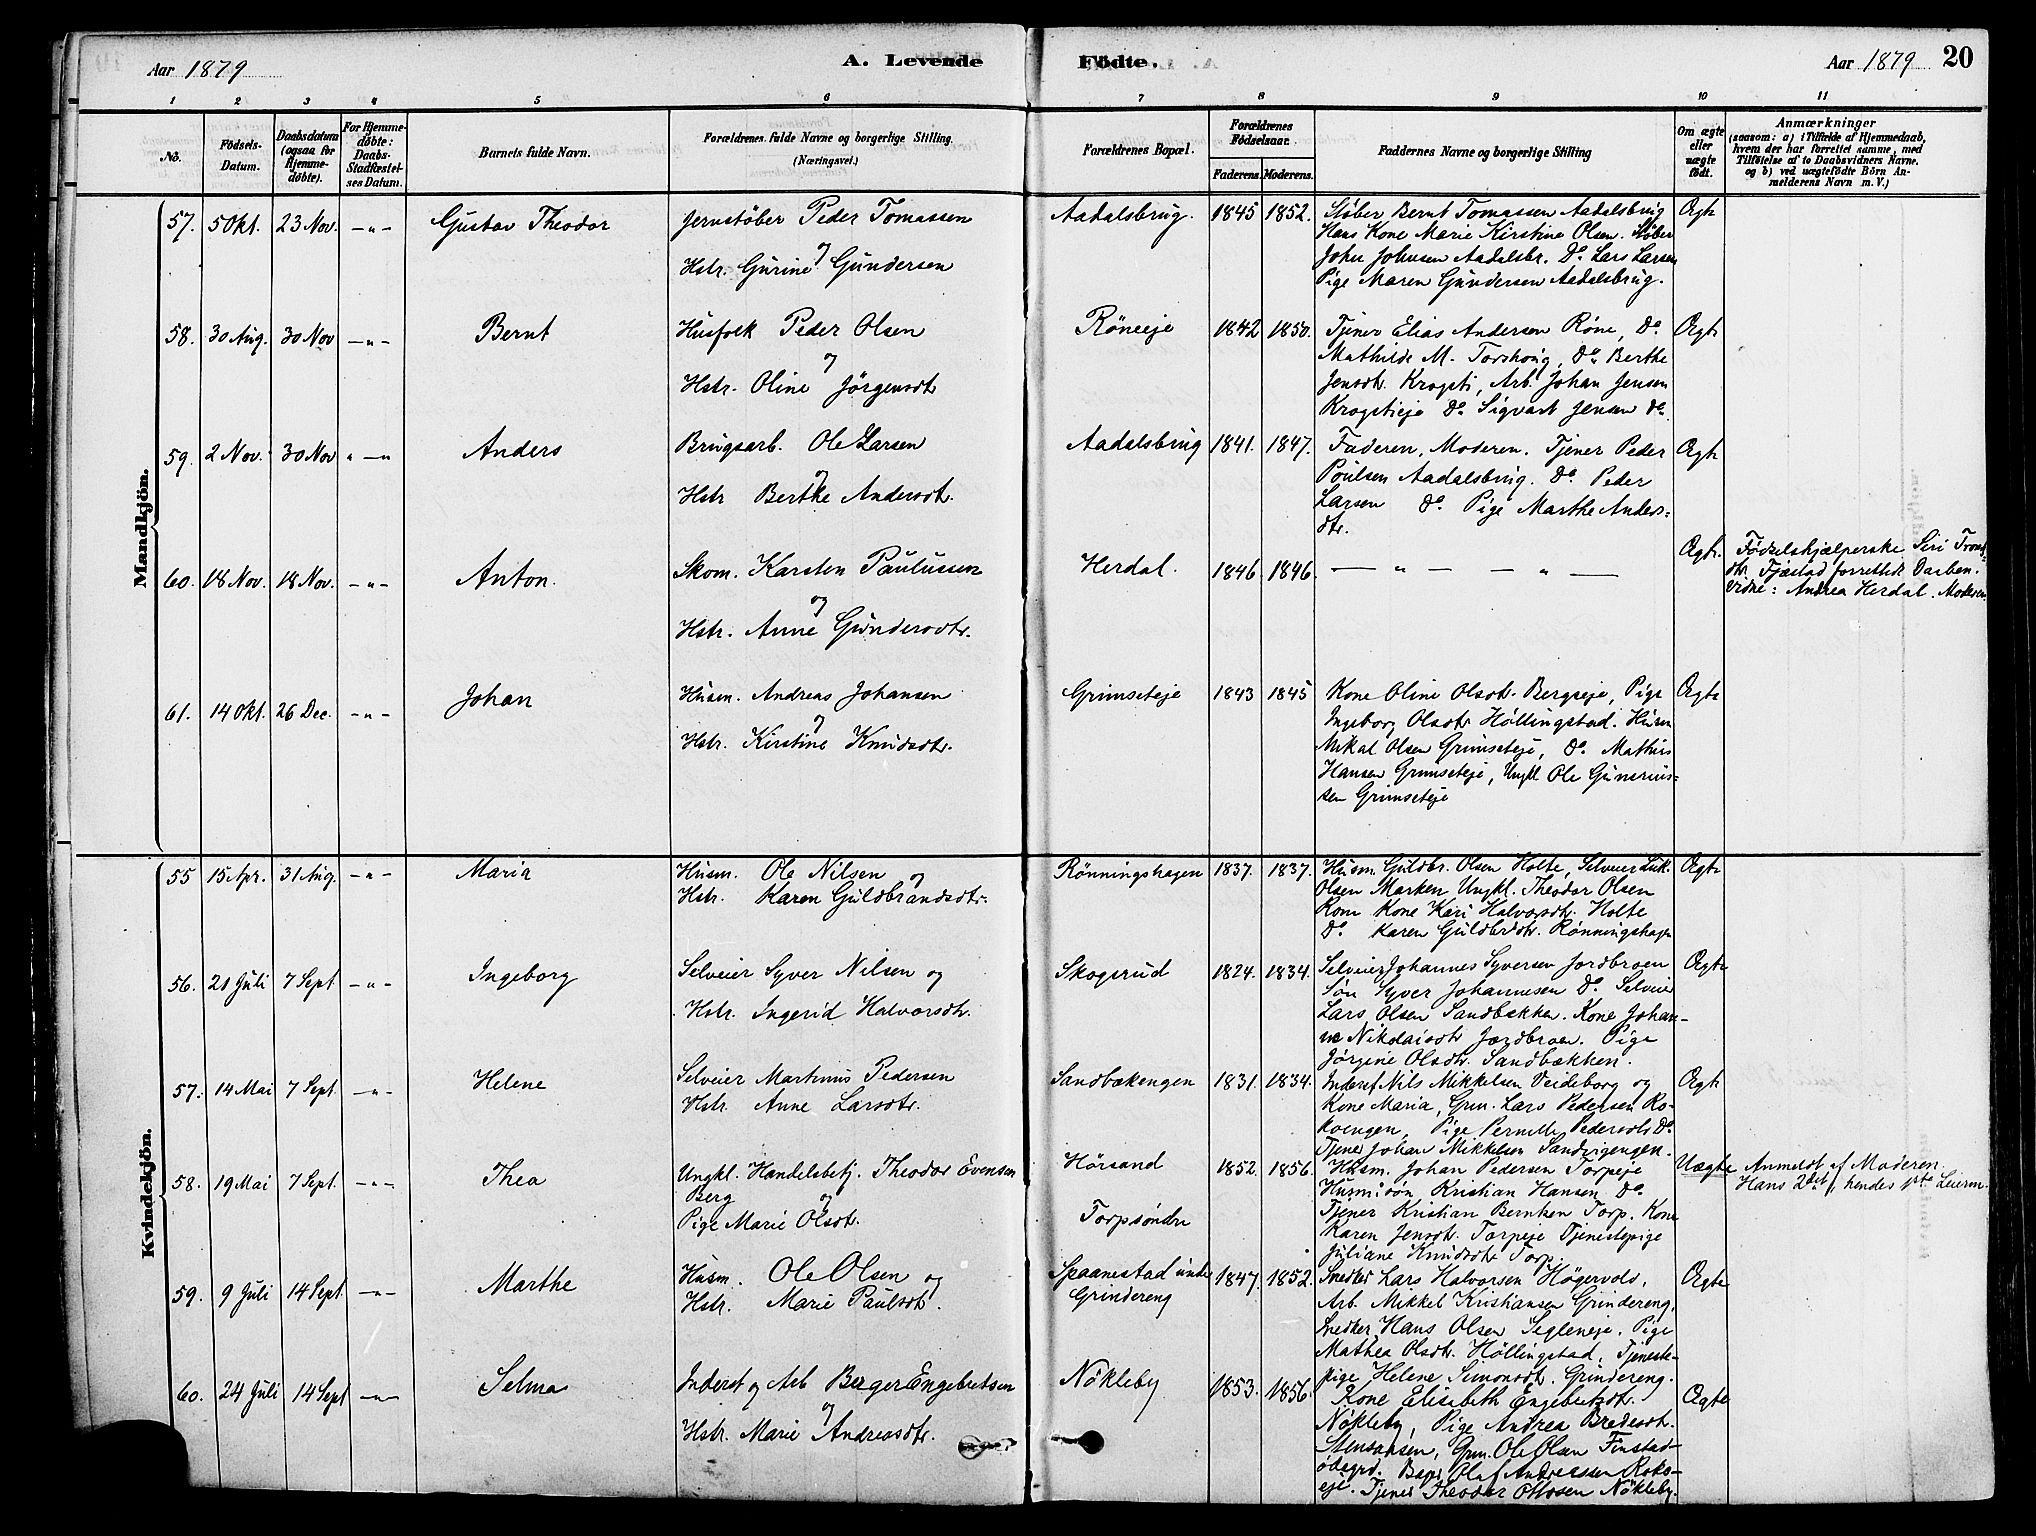 Aar 1879
A. Levende
Födte.
Aar 1879
20
1 2 3 4 5 6 7 8 9 10 11
No.
Födsels-Datum.
Daabsdatum (ogsaa for Hjemme-döbte).
For Hjemme-döbte: Daabs-Stadfæstel-ses Datum.
Barnets fulde Navn.
Forældrenes fulde Navne og borgerlige Stilling.
(Næringsvei.)
Forældrenes Bopæl.
Forældrenes Födselsaar.
Faderens. Moderens.
Faddernes Navne og borgerlige Stilling
Om ægte eller uægte födt.
Anmærkninger
(saasom: a) i Tilfælde af Hjemmedaab,
hvem der har forrettet samme, med
Tilföielse af to Daabsvidners Navne.
og b) ved uægtefödte Börn An-
melderens Navn m. V.)
Mandkjön.
57. 5 Okt. 23 Nov. —"— Gustav Theodor
Jernstöber Peder Tomassen
og
Hstr. Gurine Gundersen
Aadalsbrug. 1845 1852.
Støber Bernt Tomassen Aadalsbrug
Hans Kone Marie Kirstine Olsen. Støber
Johu Johnsen Aadalsbr. Do Lars Larsen
Pige Maren Gundersen Aadalsbrug.
Ægte
58. 30 Aug. 30 Nov —"— Bernt
Husfolk Peder Olsen
og
Hstr. Oline Jörgensdt
Röneeje 1842 1850.
Tjener Elias Andersen Röne, Do
Mathilde M. Torshoug, Do. Berthe
Jensdt. Krogsti, Arb. Johan Jensen
Krogstieje Do. Sigvart Jensen do.
Ægte
59. 2 Nov. 30 Nov "—" Anders
Brugsarb. Ole Larsen
og
Hstr Berthe Andersdt.
Aadalsbrug 1841. 1847.
Faderen, Moderen. Tjener Peder
Poulsen Aadalsbrug. Do Peder
Larsen Do Pige Marthe Anders=
dtr.
Ægte
60. 18 Nov. 18 Nov. —"— Anton.
Skom. Karsten Paulussen
og
Hstr. Anne Gundersdtr.
Herdal. 1846 1846.
— " — — " —
Ægte.
Fødselshjælperske Siri Trond=
dtr. Fjæstad forrettede Daaben.
Vidne: Andrea Herdal. Moderen
61. 14 Okt. 26 Dec. —"— Johan
Husm. Andreas Johansen
og
Hstr. Kirstine Knudsdtr.
Grimseteje 1843 1845
Kone Oline Olsdt. Bergseje, Pige
Ingeborg Olsdtr Höllingstad. Husm
Mikal Olsen Grimseteje, Do. Mathias
Hansen Grimseteje, Ungkl Ole Gunerius=
sen Grimseteje
Ægte
Kvindekjön.
55 15 Apr. 31 Aug. —"— Maria
Husm. Ole Nilsen og
Hstr. Karen Guldbrandsdtr.
Rönningshagen 1837. 1837.
Husm Guldbr. Olsen Holte, Selveier Luk.
Olsen Marken Ungkl. Theodor Olsen
Kone Kari Halvorsdt. Holte
Do Karen Guldbrdtr. Rönningshagen
Ægte
56. 21 Juli 7 Sept —"— Ingeborg
Selveier Syver Nilsen og
Hstr. Ingerid Halvorsdtr.
Skogsrud 1824. 1834.
Selveier Johannes Syversen Jordbroen
Sön Syver Johannesen Do. Selveier
Lars Olsen Sandbækken. Kone Johan-
ne Nikolaisdtr Jordbroen. Pige
Jörgine Olsdtr. Sandbækken.
Ægte
57. 14 Mai 7 Sept. —"— Helene
Selveier Martinus Pedersen
Hstr. Anne Larsdtr.
Sandbækengen 1831. 1834.
Inderst Nils Mikkelsen Veideborg og
Kone Maria, Grm. Lars Pedersen Ro-
koengen, Pige Pernille Pedersdt Do
Tjener Johan Mikkelsen
Ægte
58. 19 Mai 7 Sept. —"— Thea
Ungkl. Handelsbetj. Theodor Evensen
Berg og
Pige Marie Olsdtr.
Hörsand
Torpsöndre
1852. 1856.
Husm. Johan Pedersen Torpeje
Husm.sön Kristian Hansen Do.
Tjener Kristian Berntsen Torp. Kone
Karen Jensdt. Torpeje Tjenestepige
Juliane Knudsdtr Torp.
Uægte
Anmeldt af Moderen.
Hans 2det, hendes 1ste Leierm.
59. 9 Juli 14 Sept. —"— Marthe
Husm. Ole Olsen og
Hstr. Marie Paulsdt.
Spaanestad under
Grindereng
1847. 1852.
Snedker Lars Halvorsen Högervold,
Arb. Mikkel Kristiansen Grindereng,
Snedker Hans Olsen Segleneje. Pige
Mathea Olsdtr. Höllingstad, Tjeneste-
pige Helene Simonsdt. Grindereng.
Ægte
60. 24 Juli 14 Sept —"— Selma
Inderst og Arb Berger Engebretsen
og
Hstr. Marie Andreasdtr.
Nökleby 1853. 1856.
Kone Elisabeth Engebretsdt.
Nökleby, Pige Andrea Bredesdt.
Stensaasen, Grm. Ole Olsen Finstad-
ödegrd. Bager Oluf Andreassen Roko-
eje. Tjener Theodor Ottosen Nökleby.
Ægte